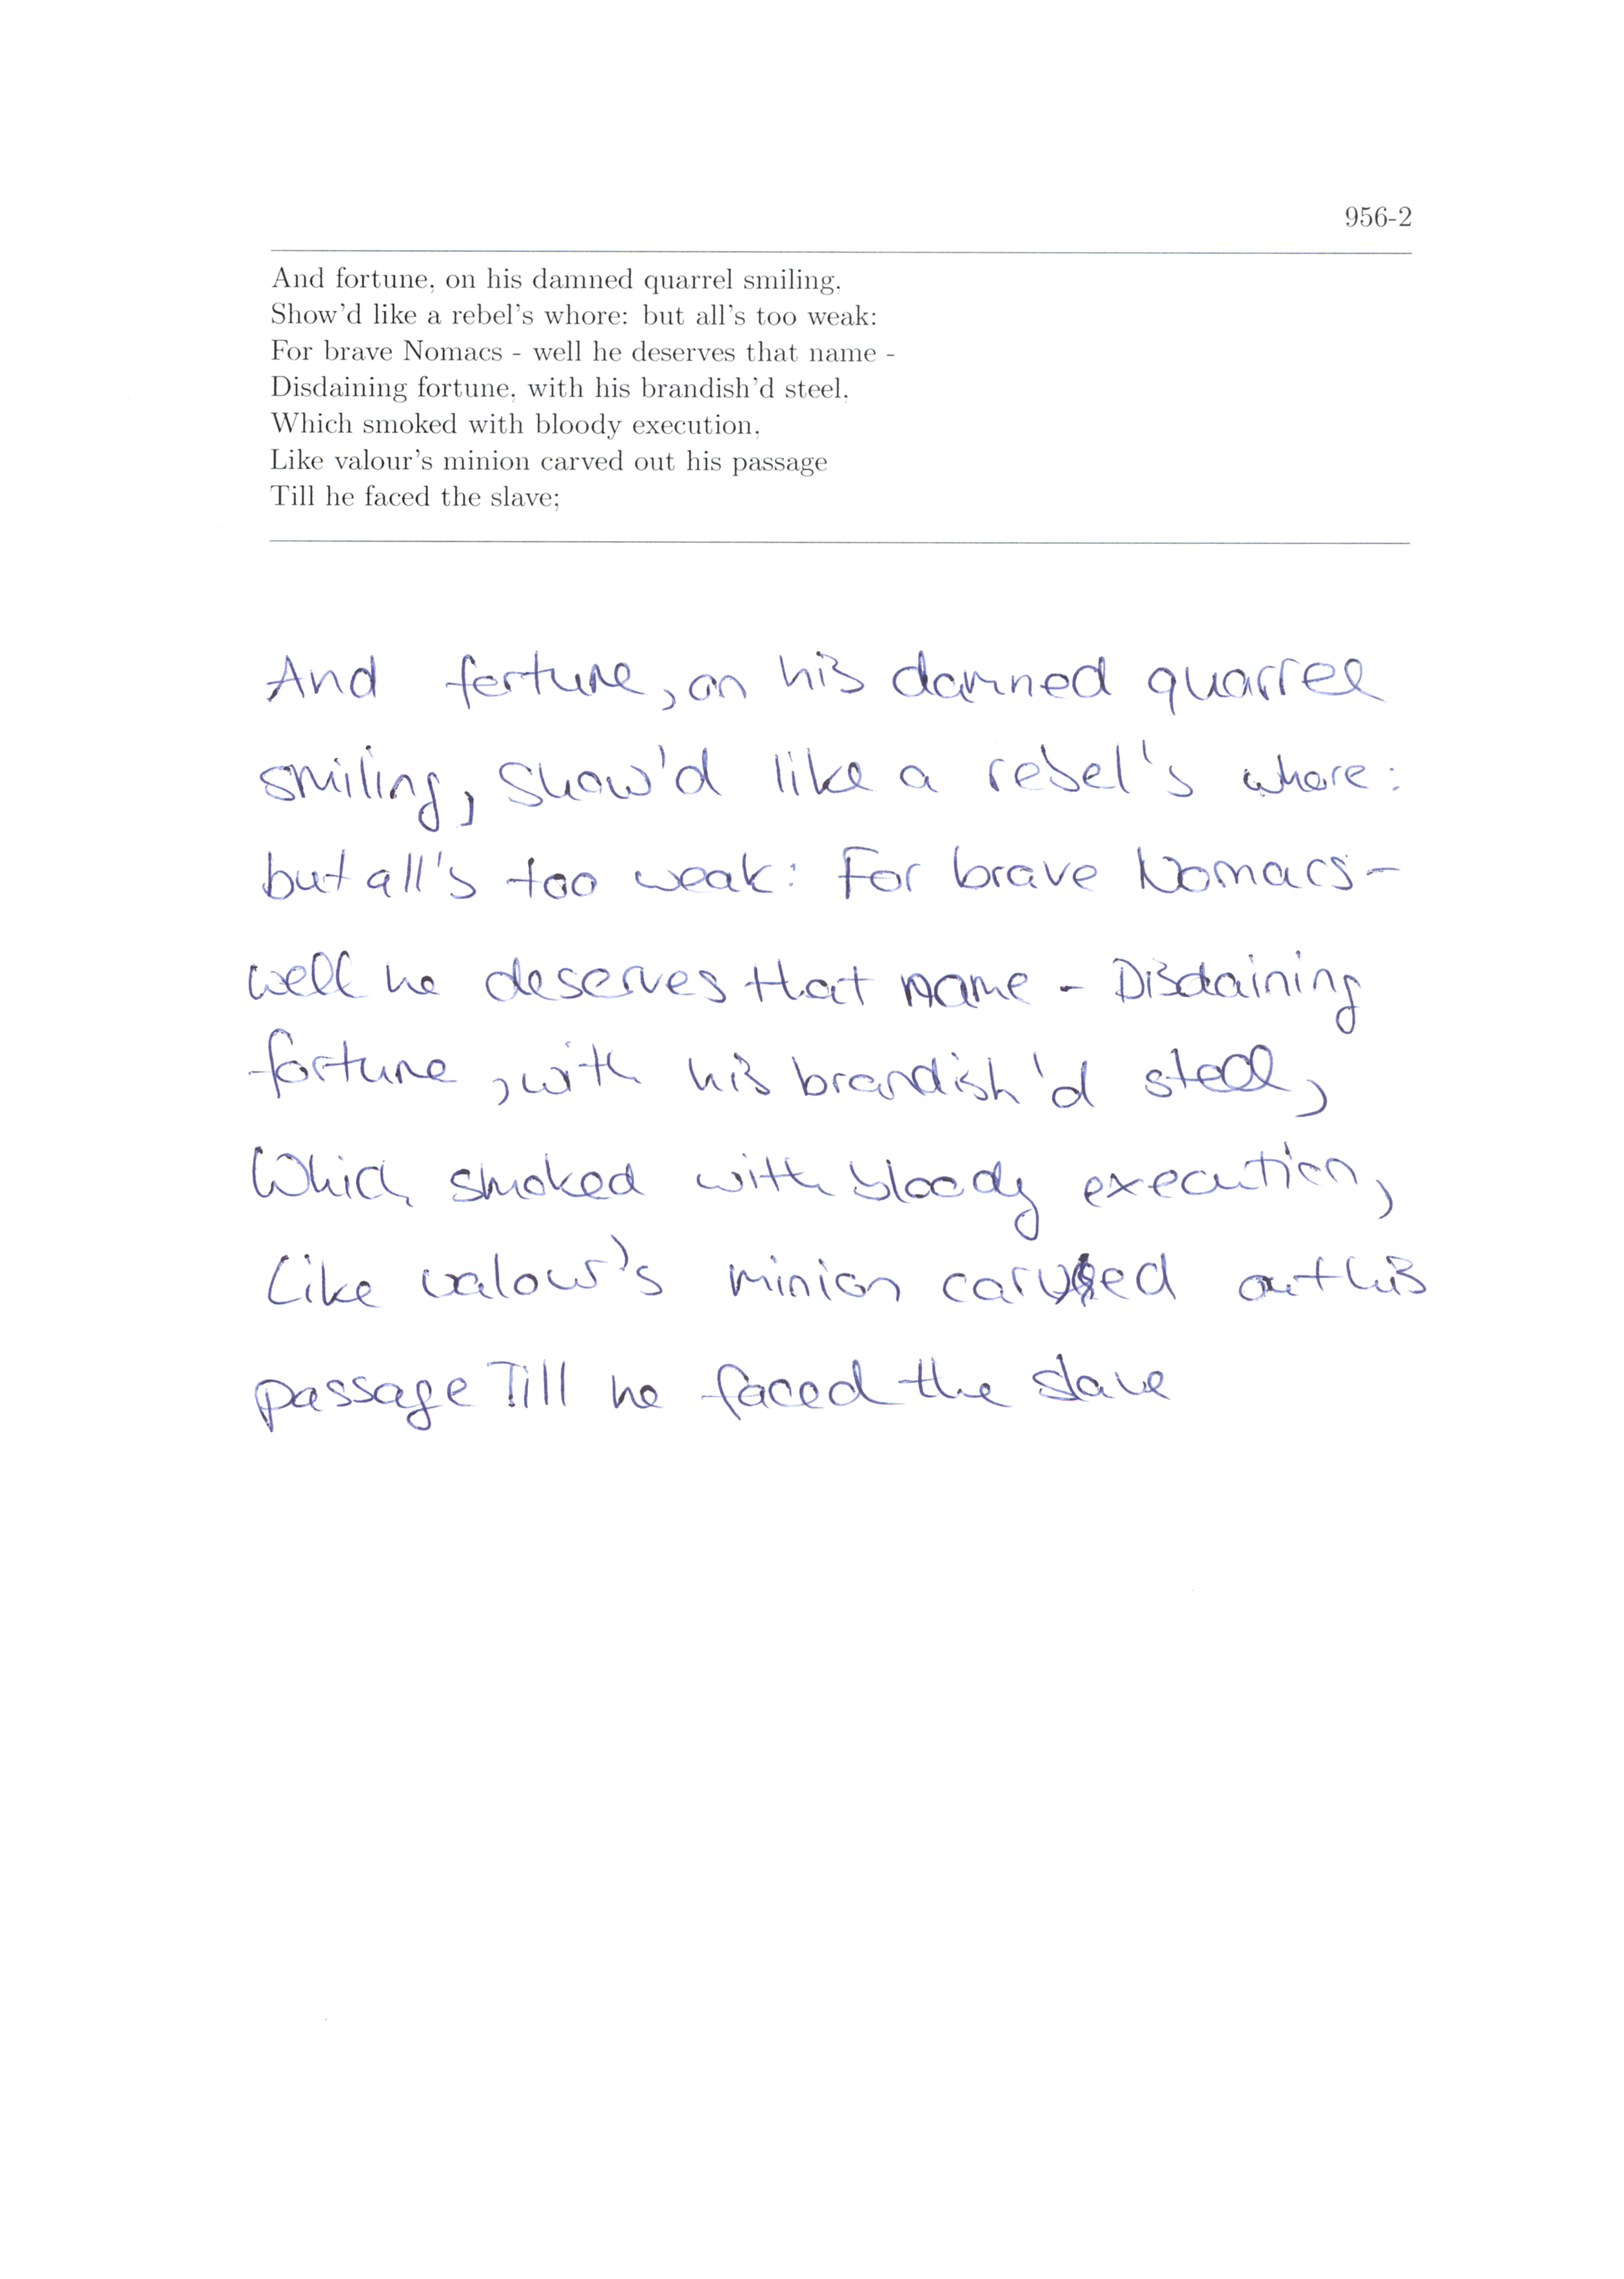 956-2
And fortune, on his damned quarrel smiling,
Show'd like a rebel's whore: but all's too weak:
For brave Nomacs - well he deserves that name -
Disdaining fortune, with his brandish'd steel,
Which smoked with bloody execution,
Like valour's minion carved out his passage
Till he faced the slave;
And fortune, on his damned quarrel
smiling, Show'd like a rebel's whore:
but all's too weak: For brave Nomacs-
well he deserves that name - Disdaining
fortune, with his brandish'd steel,
Which smoked with bloody execution,
Like valour's minion carved out his
passage Till he faced the slave